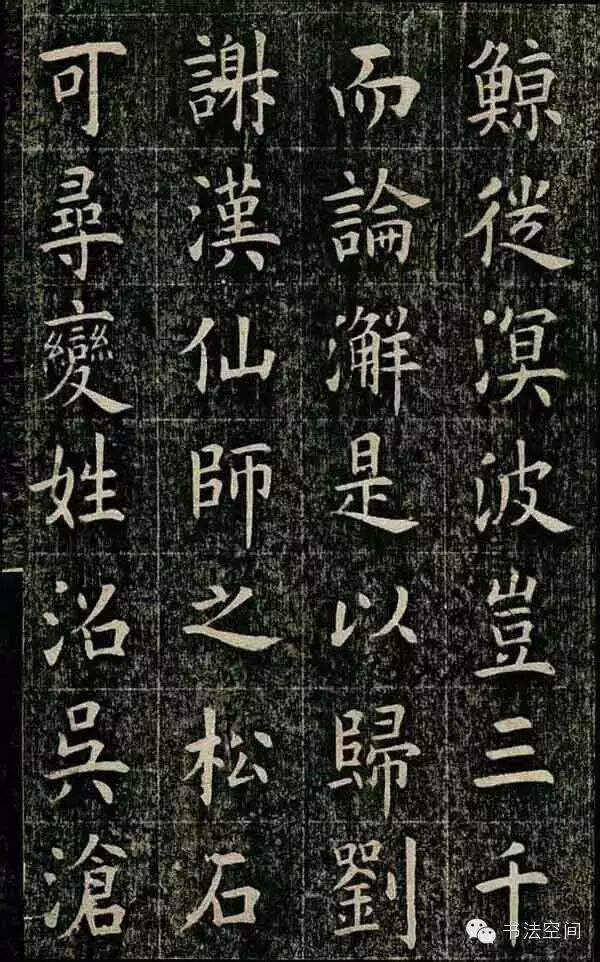 鯨従溟波豈三千
而論澥是以歸劉
謝漢仙師之松石
可尋變姓沿吳滄
书法空间